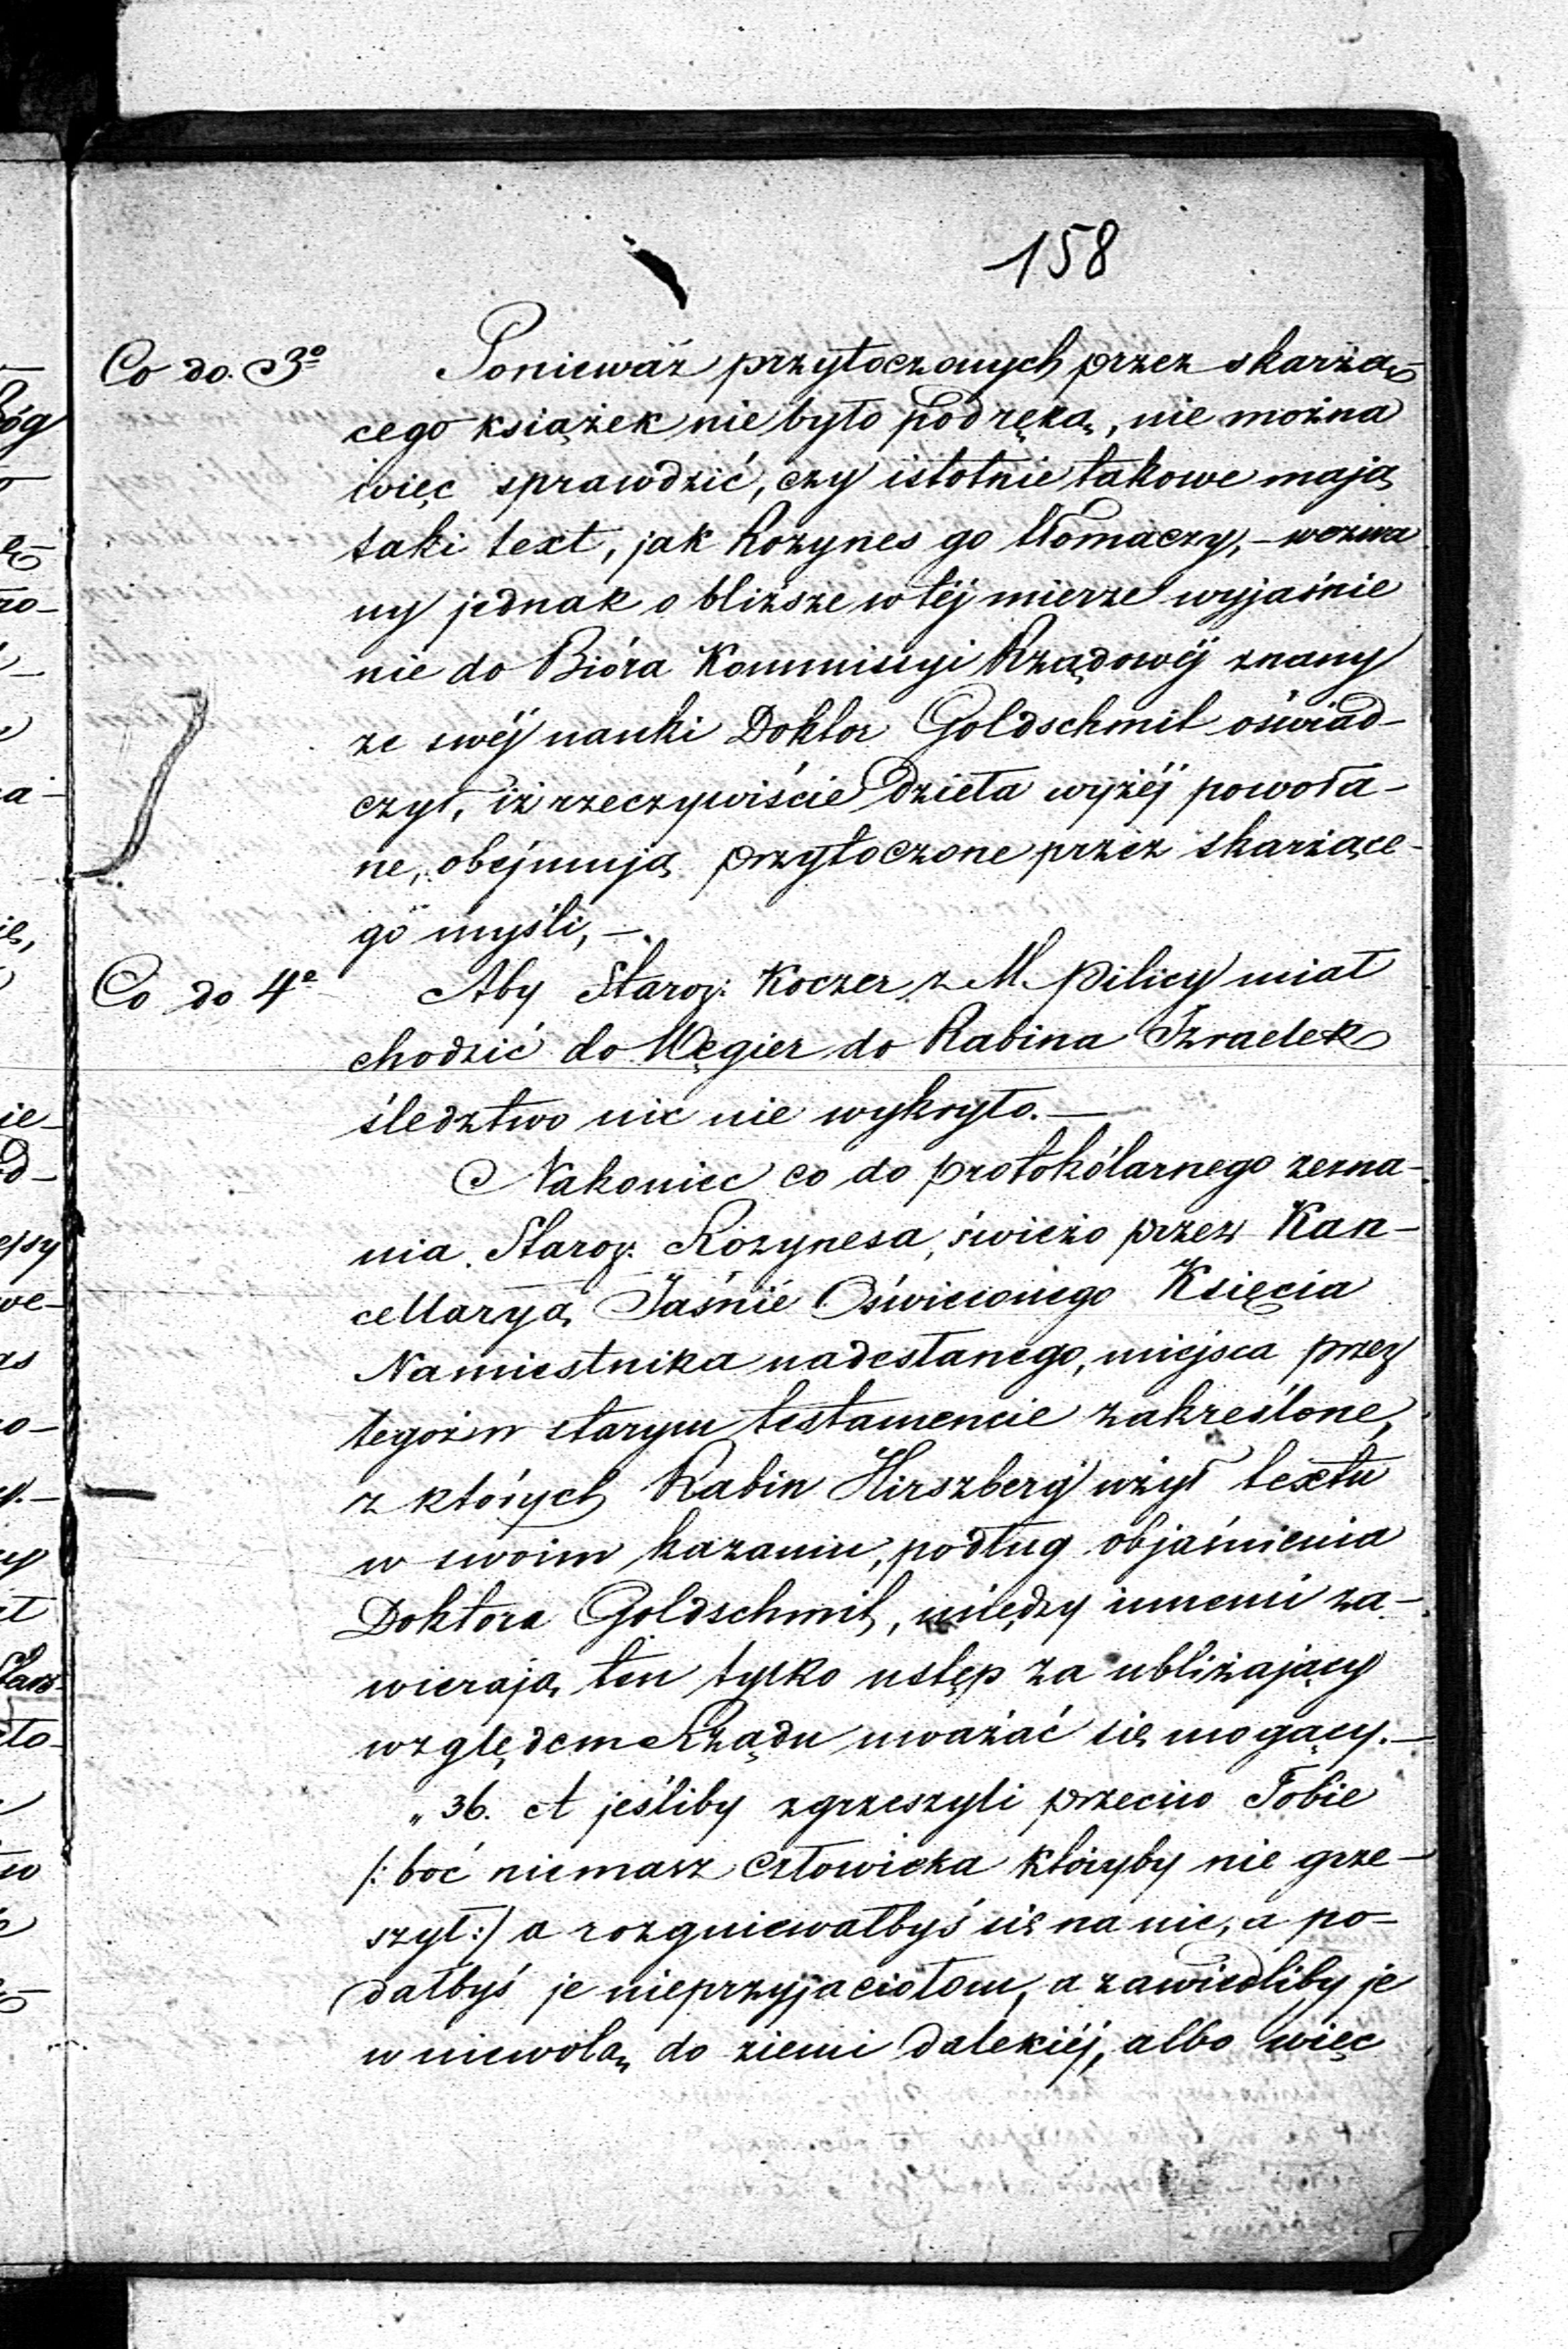 158
Co do 3º Ponieważ przytoczonych przez skarżą-
cego książek nie było pod ręką, nie można
więc sprawdzić, czy istotnie takowe mają
taki text, jak Rozynes go tłomaczy, – wezwa
ny jednak o bliższe w téj mierze wyjaśnie
nie do Bióra Kommissyi Rządowéj znany
ze swéj nauki Doktor Goldschmit oświad-
czył, iż rzeczywiście dzieła wyżéj powoła-
ne, obejmują przytoczone przez skarżące-
go myśli, –.
Co do 4º Aby Staroz: Koczer z M. Pilicy miał
chodzić do Węgier do Rabina Izraelek
śledztwo nic nie wykryło. –
Nakoniec co do protokólarnego zezna-
nia Staroz: Rozynesa, świeżo przez Kan-
cellaryą Jaśnie Oświeconego Księcia
Namiestnika nadesłanego, miejsca przez
tegoż w starym testamencie zakreślone,
z których Rabin Hirszberg użył textu
w swoim kazaniu, podług objaśnienia
Doktora Goldschmit, między innemi za-
wierają ten tylko ustęp za ubliżający
względem Rządu uważać się mogący. –
„36. A jeśliby zgrzeszyli przeciw Tobie
/: boć niemasz człowieka któryby nie grze-
szył :/ a rozgniewałbyś się na nie, a po-
dałbyś je nieprzyjaciołom, a zawiedliby je
w niewolą do ziemi dalekiéj, albo więc